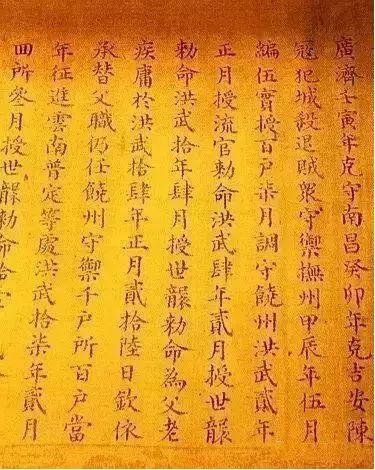 廣濟壬寅年克守南昌癸卯年克吉安陳
冦犯城殺退賊衆守禦撫州甲辰年伍月
編伍實授百戶柒月調守饒州洪武貳年
正月授流官勅命洪武肆年貳月授世襲
勅命洪武拾年肆月授世襲勅命為父老
疾庸於洪武拾肆年正月貳拾陸日欽依
承替父職仍任饒州守禦千戶所百戶當
年征進雲南普定等處洪武拾柒年貳月
囬所叅月授世襲勅命